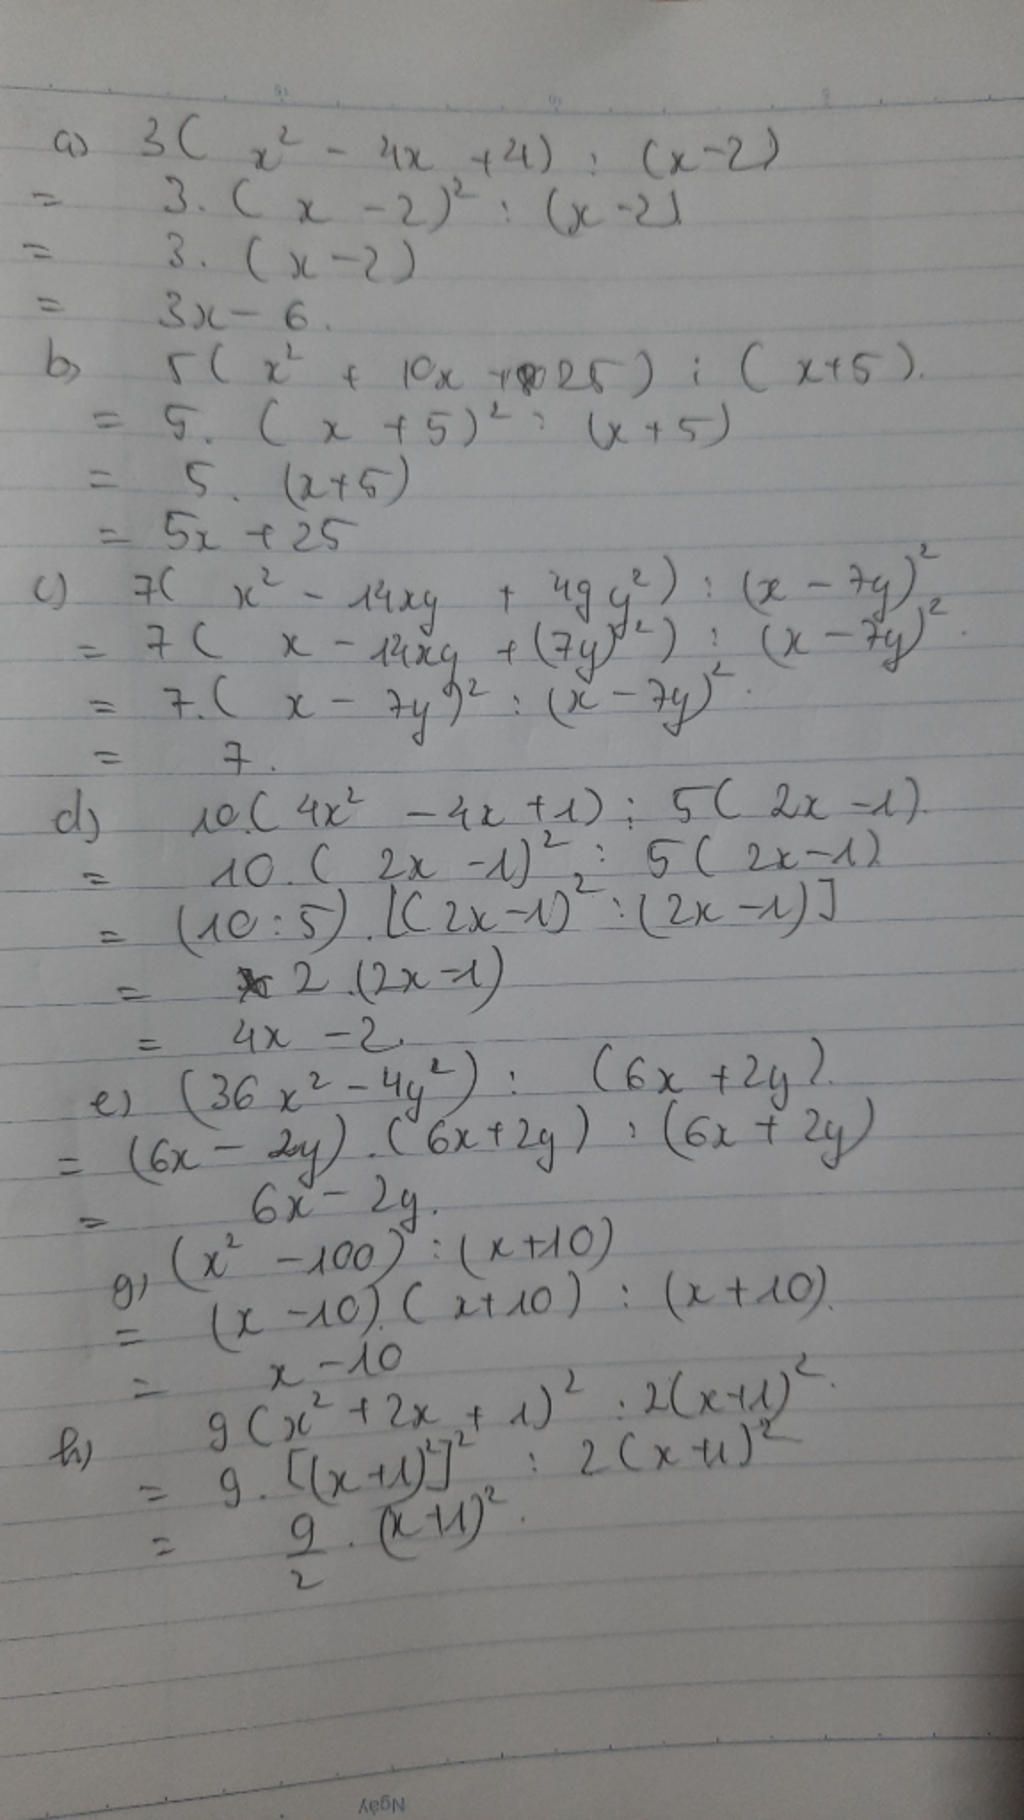 a) 3( x² - 4x + 4) : (x-2)
= 3. ( x - 2)² : (x-2)
= 3. (x-2)
= 3x - 6.
b) 5( x² + 10x + 25) : ( x+5).
= 5. ( x + 5)² : (x+5)
= 5. (x+5)
= 5x + 25
c) 7( x² - 14xy + 49y²) : (x - 7y)²
= 7( x - 14xy + (7y)²) : (x - 7y)².
= 7.( x - 7y)² : (x - 7y)².
= 7.
d) 10.( 4x² - 4x + 1) : 5( 2x - 1).
= 10.( 2x - 1)² : 5( 2x - 1)
= (10 : 5) . [( 2x - 1)² : (2x - 1)]
= 2 .(2x - 1)
= 4x - 2.
e) (36x² - 4y²) : (6x + 2y).
= (6x - 2y) . ( 6x + 2y) : (6x + 2y)
= 6x - 2y.
g) (x² - 100) : (x+10)
= (x - 10).( x+10) : (x + 10).
= x - 10
h) 9(x² + 2x + 1)² : 2(x+1)².
= 9. [(x+1)²]² : 2(x+1)²
= 9/2 . (x+1)².
Ngày